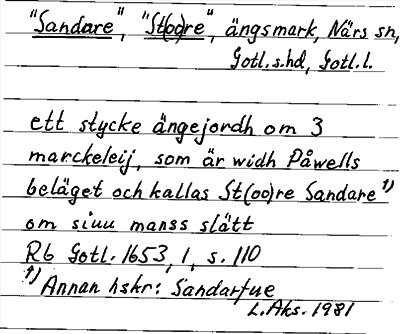 "Sandare", "St(oo)re", ängsmark, Närs sn,
Gotl.s.hd, Gotl.l.
ett stycke ängejordh om 3
marckeleij, som är widh Påwells
beläget och kallas St(oo)re Sandare 1)
om siuu manss slätt
Rb Gotl. 1653, 1, s. 110
1) Annan hskr: Sandarfue
L.Aks. 1981